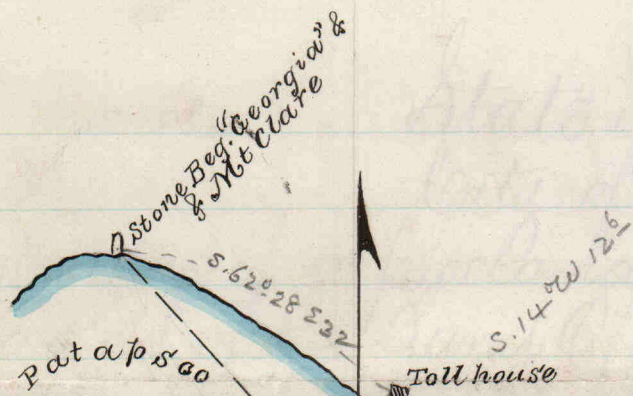 Stone Beg. "Georgia" &
& Mt Clare
S. 62° 28 E 32
S. 14° W 12 6
Patapsco
Toll house